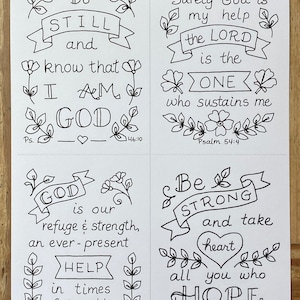 Be
STILL
and
know that
I AM
GOD
Ps. 46:10
Surely God is
my help
the LORD
is the
ONE
who sustains me
Psalm 54:4
GOD
is our
refuge & strength,
an ever-present
HELP
in times
Be
STRONG
and take
heart
all you who
HOPE